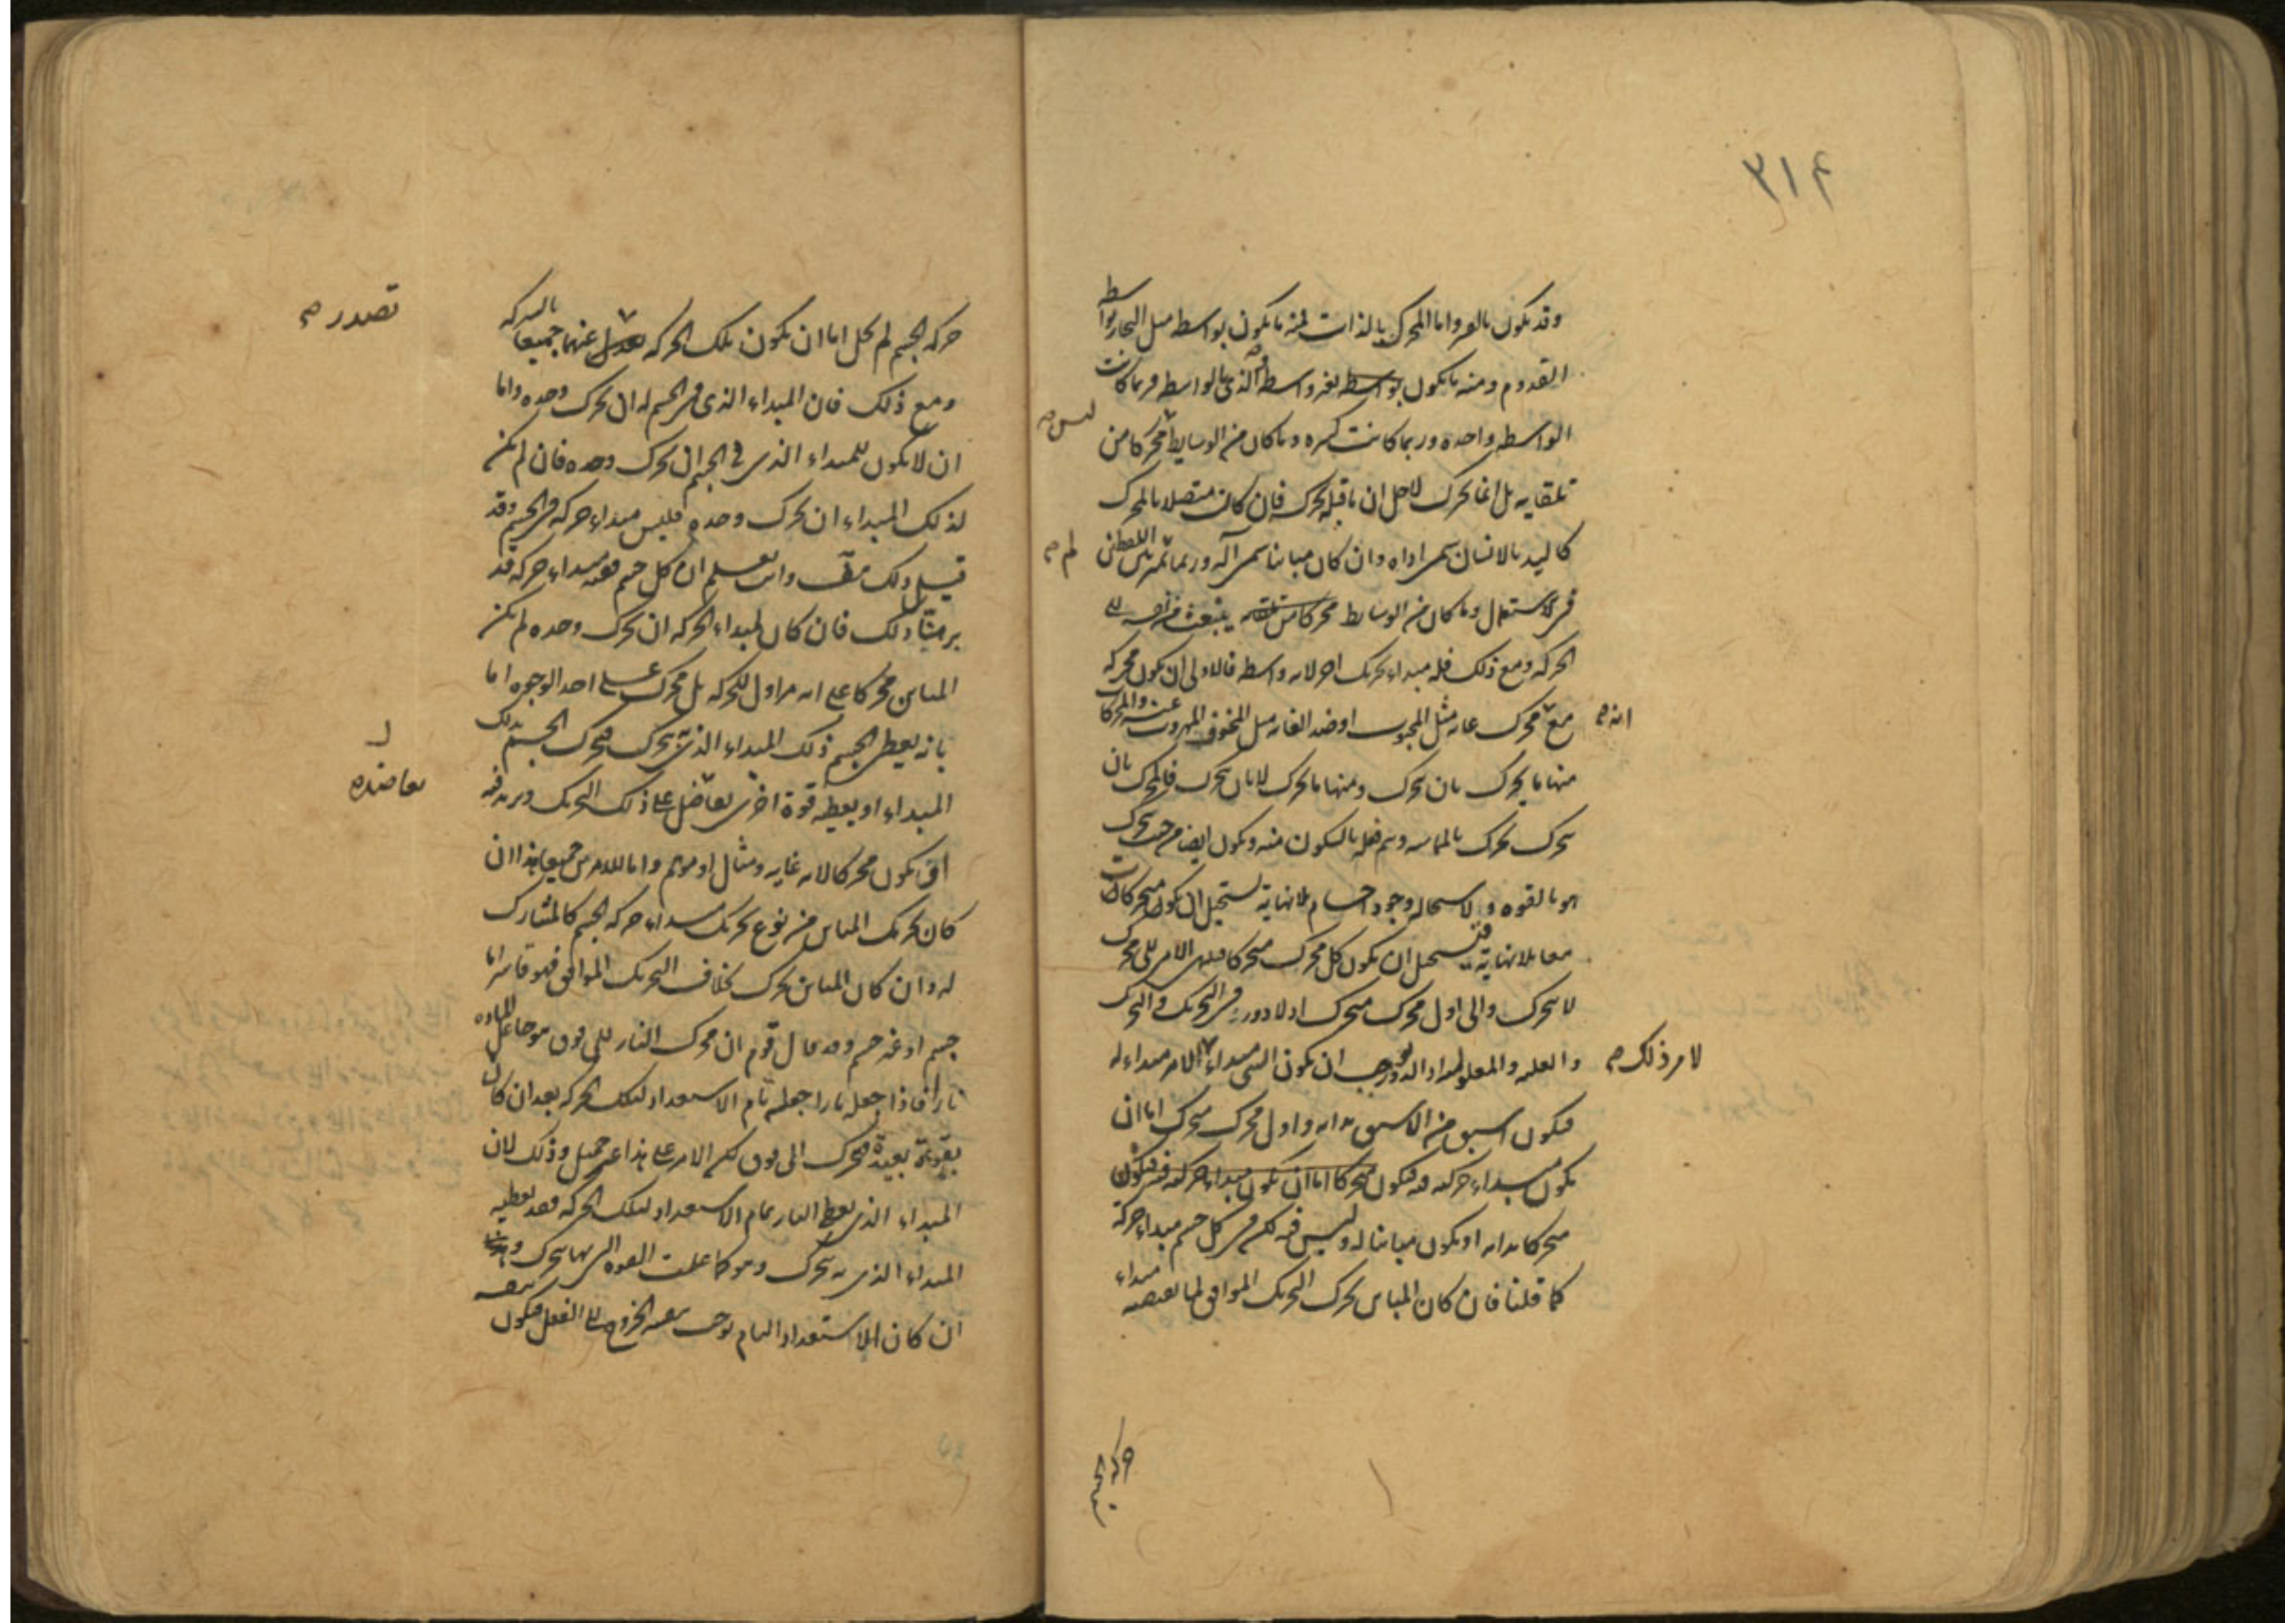 ٣١۴
وقد يكون بالعرض واما المحرك بالذات فمنه ما يكون بواسطة مثل النجار بواسطة
القدوم ومنه ما يكون بغير واسطة الذي بالواسطة فربما كانت
الواسطة واحدة وربما كانت كثيرة وما كان من الوسايط محركا من
ليس ص
تلقايه بل انما يحرك لاجل ان ما قبله يحرك فان كان متصلا بالمحرك
كاليد بالانسان سمى اداة وان كان مباينا سمى آلة وربما اللفظان
لم ص
في الاستعمال وما كان من الوسايط ينبعث من نفسه الى
الحركة ومع ذلك فله مبداء تحريك اخر لانه واسطة فالاولى ان يكون محركه
مع محرك غاية مثل المحبوب او ضد الغاية مثل المخوف المهروب عنه والمحركات
انه ص
منها ما يحرك بان يتحرك ومنها ما يحرك لا بان يتحرك فالمحرك بان
يتحرك يحرك بالمماسة ويتم فعله بالسكون منه ويكون ايضا من حيث يتحرك
هو بالقوة ولاستحالة وجود اجسام بلا نهاية تستحيل ان يكون متحركات
معا بلا نهاية فيستحيل ان يكون كل محرك متحركا فينتهى الامر الى محرك
لا يتحرك والى اول محرك متحرك اذ لا دور في التحريك والتحرك
والعلة والمعلول اذ الدور يوجب ان يكون الشى مبداء الامر مبداء له
لامر ذلك ص
فيكون اسبق من الاسبق بذاته واول محرك متحرك اما ان
يكون مبداء حركته فيه فيكون
متحركا بذاته او يكون مباينا له وليس فيه لكن فى كل جسم مبداء حركة
كما قلنا فان كان المباين يحرك التحريك الموافق لما يقتضيه مبداء
حركة الجسم
حركة الجسم لم يخل اما ان يكون تلك الحركة عنهما جميعا بالشركة
تصدر ص
ومع ذلك فان المبداء الذى فى الجسم له ان يحرك وحده واما
ان لا يكون للمبداء الذى فى الجسم ان يحرك وحده فان لم يكن
لذلك المبداء ان يحرك وحده فليس مبداء حركة فى الجسم وقد
قيل ذلك وانت تعلم ان كل جسم ففيه مبداء حركة قد
برهنا ذلك فان كان لمبداء الحركة ان يحرك وحده لم يكن
المباين محركا على انه مزاول للحركة بل محرك على احد الوجوه اما
بانه يعطى الجسم ذلك المبداء الذى به يتحرك فيحرك الجسم بذلك
المبداء او يعطيه قوة اخرى على ذلك التحريك ويرفده
معاضدة
او يكون محركا لانه غاية ومثال او موتم واما للامرين جميعا هذا ان
كان تحريك المباين من نوع تحريك مبداء حركة الجسم كالمشارك
له وان كان المباين يحرك بخلاف التحريك الموافق فهو قاسر اما
جسم او غير جسم وقد قال قوم ان محرك النار الى فوق هو جاعل المادة
نارا فاذا جعلها نارا جعله تام الاستعداد لتلك الحركة بعد ان كان
بقوة بعيدة فتحرك الى فوق لكن الامر على هذا غير جميل وذلك لان
المبداء الذى يعطى النار تمام الاستعداد لتلك الحركة فقد يعطيه
المبداء الذى به يتحرك وهو كما علمت القوة التى بها يتحرك
ان كان الاستعداد التام يوجب بنفسه الخروج الى الفعل فيكون